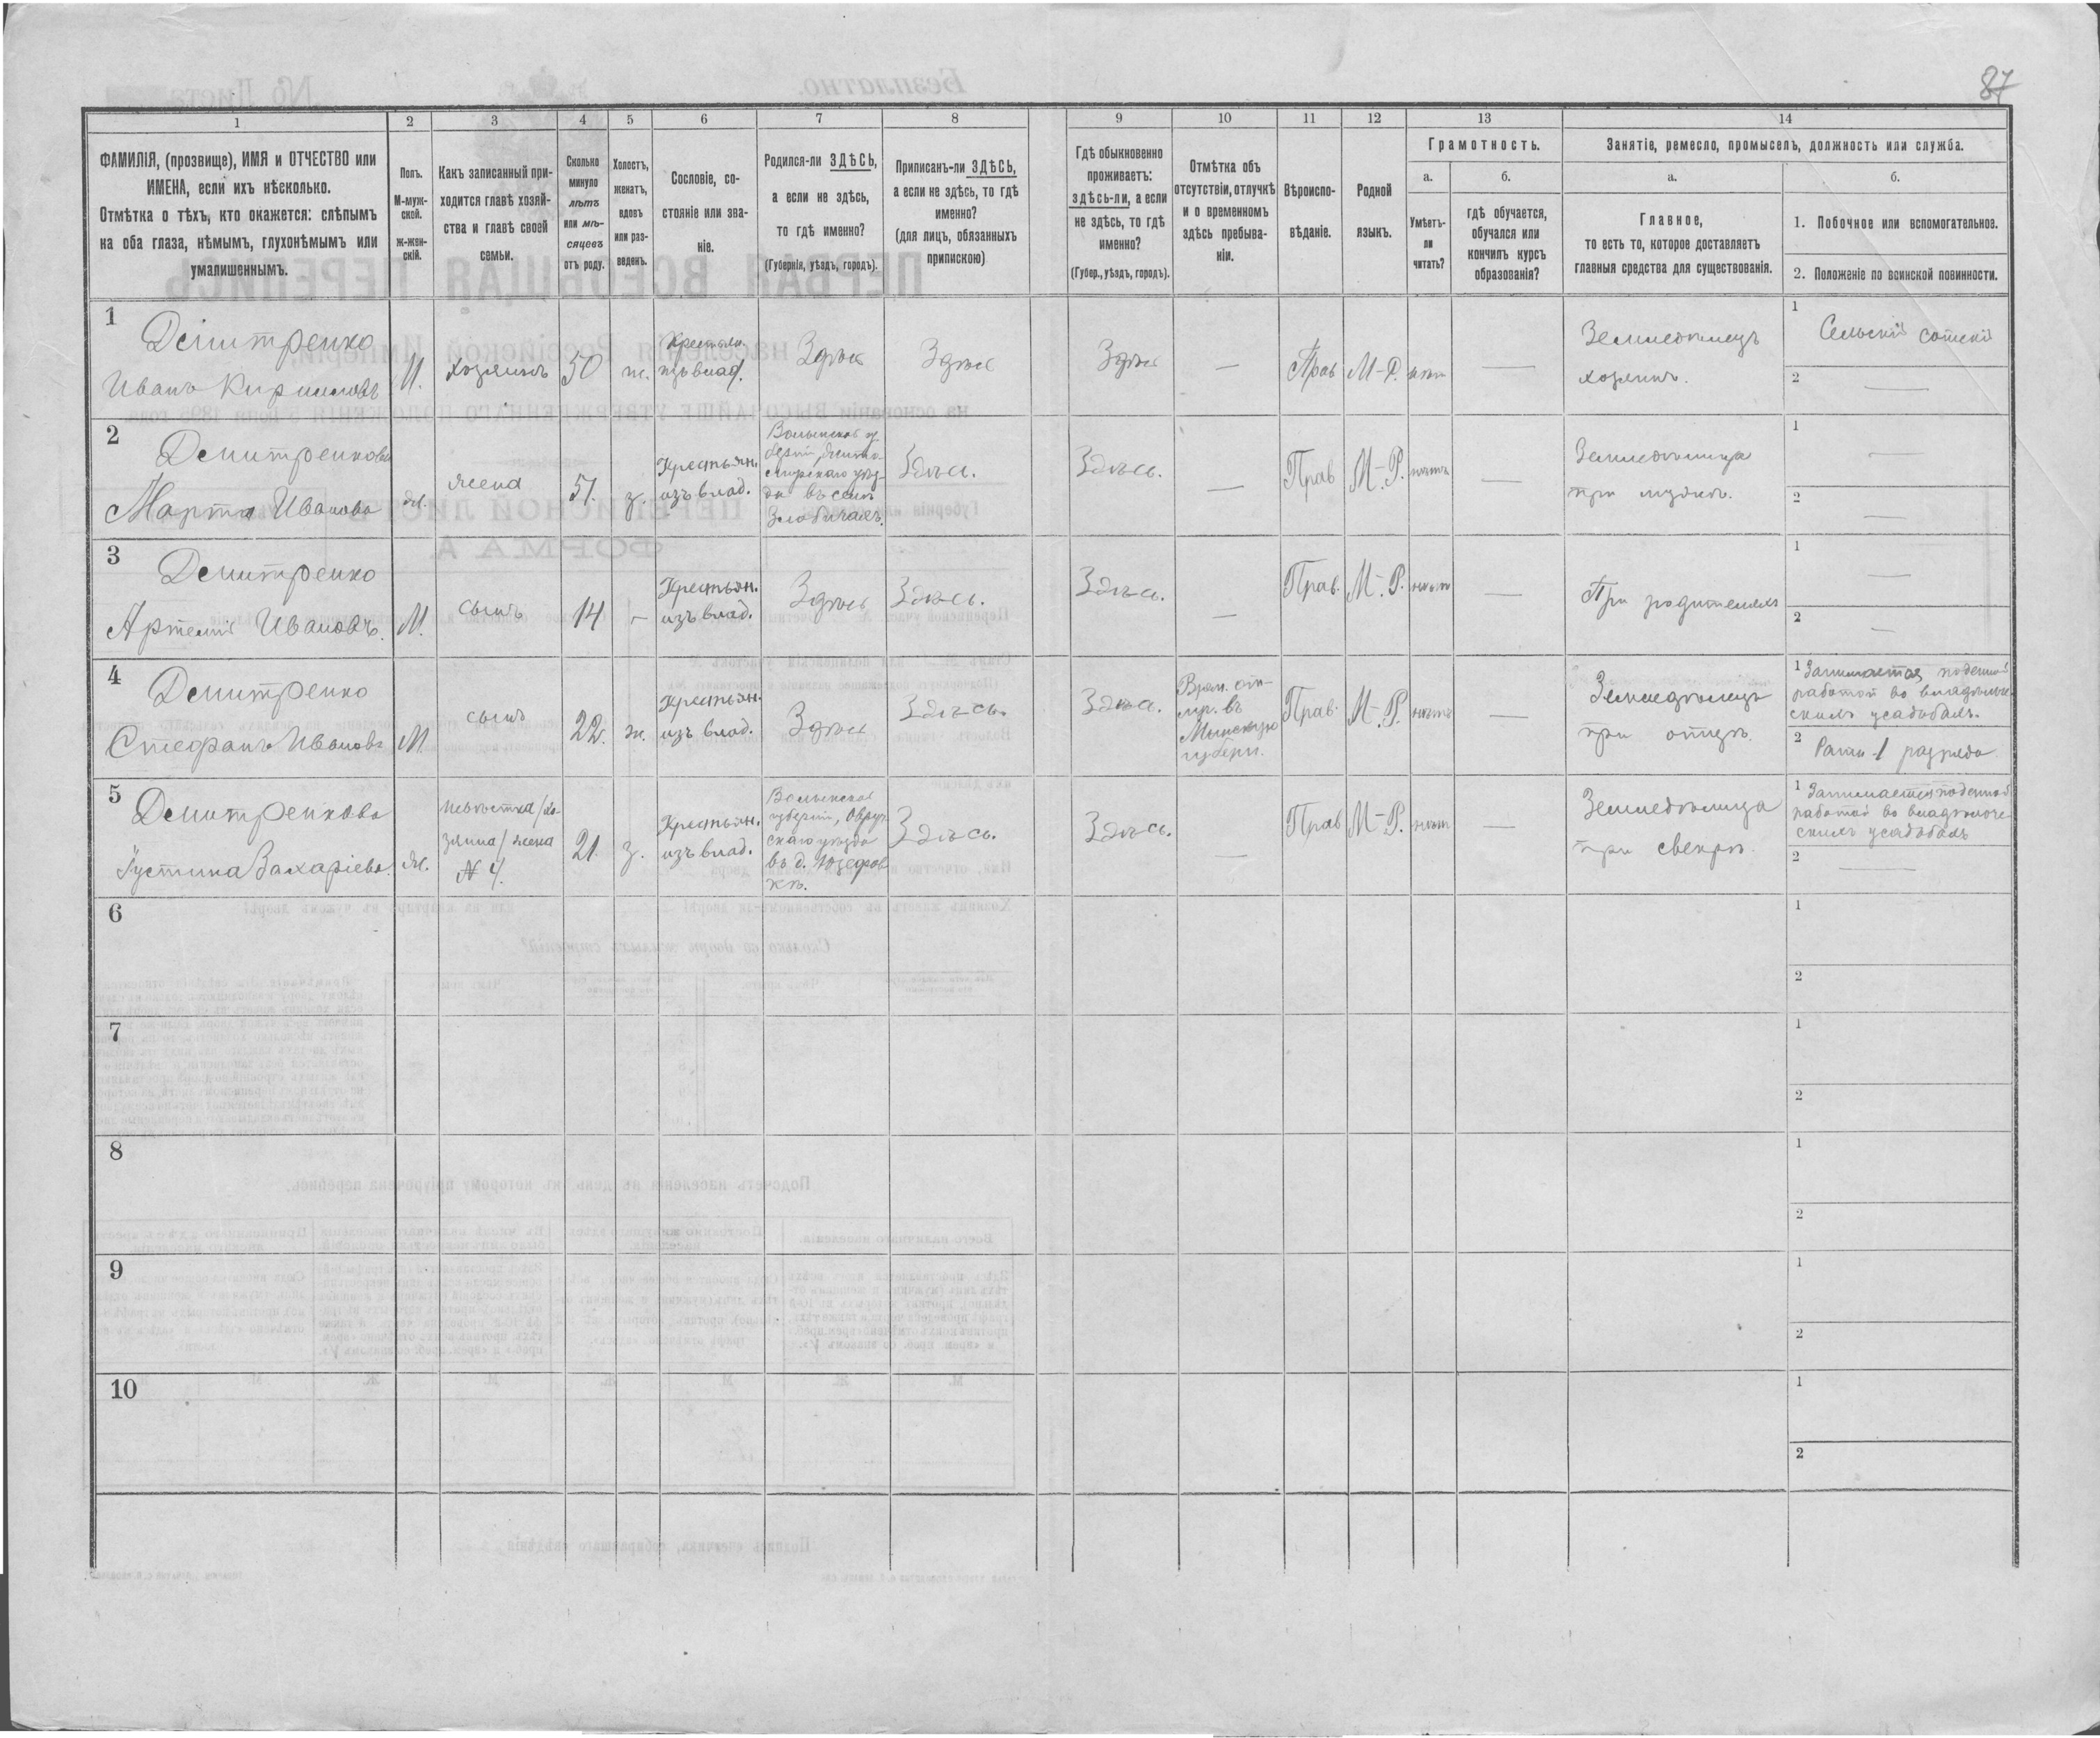 87
1
2
3
4
5
6
7
8
9
10
11
12
13
14
ФАМИЛІЯ, (прозвище), ИМЯ и ОТЧЕСТВО или
ИМЕНА, если ихъ нѣсколько.
Отмѣтка о тѣхъ, кто окажется: слѣпымъ
на оба глаза, нѣмымъ, глухонѣмымъ или
умалишеннымъ.
Полъ.
М-муж-
ской.
Ж-жен-
скій.
Какъ записанный при-
ходится главѣ хозяй-
ства и главѣ своей
семьи.
Сколько
минуло
лѣтъ
или мѣ-
сяцевъ
отъ роду.
Холостъ,
женатъ,
вдовъ
или раз-
веденъ.
Сословіе, со-
стояніе или зва-
ніе.
Родился-ли ЗДѢСЬ,
а если не здѣсь,
то гдѣ именно?
(Губернія, уѣздъ, городъ).
Приписанъ-ли ЗДѢСЬ,
а если не здѣсь, то гдѣ
именно?
(для лицъ, обязанныхъ
припискою)
Гдѣ обыкновенно
проживаетъ:
здѣсь-ли, а если
не здѣсь, то гдѣ
именно?
(Губер., уѣздъ, городъ).
Отмѣтка объ
отсутствіи, отлучкѣ
и о временномъ
здѣсь пребыва-
ніи.
Вѣроиспо-
вѣданіе.
Родной
языкъ.
Грамотность.
а.
Умѣетъ-
ли
читать?
б.
гдѣ обучается,
обучался или
кончилъ курсъ
образованія?
Занятіе, ремесло, промыселъ, должность или служба.
а.
Главное,
то есть то, которое доставляетъ
главныя средства для существованія.
б.
1. Побочное или вспомогательное.
2. Положеніе по воинской повинности.
1
Демитренко
Иванъ Кириловъ
М.
хозяинъ
50
ж.
Крестьян.
изъ влад.
Здѣсь
Здѣсь
Здѣсь
—
Прав
М-Р.
нѣт
—
Земледѣлецъ
хозяинъ.
1
Сельскій сотскій
2
—
2
Демитренкова
Марта Иванова
Ж.
жена
51.
з.
Крестьян.
изъ влад.
Волынской гу
берніи, Житом
ирскаго уѣз-
да въ селѣ
Злобичахъ.
Здѣсь.
Здѣсь.
—
Прав
М-Р.
нѣтъ
—
Земледѣлица
при мужѣ.
1
—
2
—
3
Демитренко
Артемій Ивановъ.
М.
сынъ
14
—
Крестьян.
изъ влад.
Здѣсь
Здѣсь.
Здѣсь.
—
Прав.
М-Р.
нѣт
—
При родителяхъ
1
—
2
—
4
Демитренко
Стефанъ Ивановъ
М.
сынъ
22.
ж.
Крестьян.
изъ влад.
Здѣсь
Здѣсь.
Здѣсь.
Врем. от-
пр. въ
Минскую
губерн.
Прав.
М-Р.
нѣтъ
—
Земледѣлецъ
при отцѣ.
1 Занимается поденной
работой во владѣльче
скихъ усадьбахъ.
2 Ратн. 1 разряда
5
Демитренкова
Іустина Захаріева.
Ж.
невѣстка /хо-
зяина/ жена
N 4.
21.
з.
Крестьян.
изъ влад.
Волынской
губерніи, Овруч
скаго уѣзда
въ д. Юзефов
кѣ.
Здѣсь.
Здѣсь.
—
Прав
М-Р.
нѣт
—
Земледѣлица
при свекрѣ.
1 Занимается поденной
работой во владѣльче
скихъ усадьбахъ
2
—
6
1
2
7
1
2
8
1
2
9
1
2
10
1
2